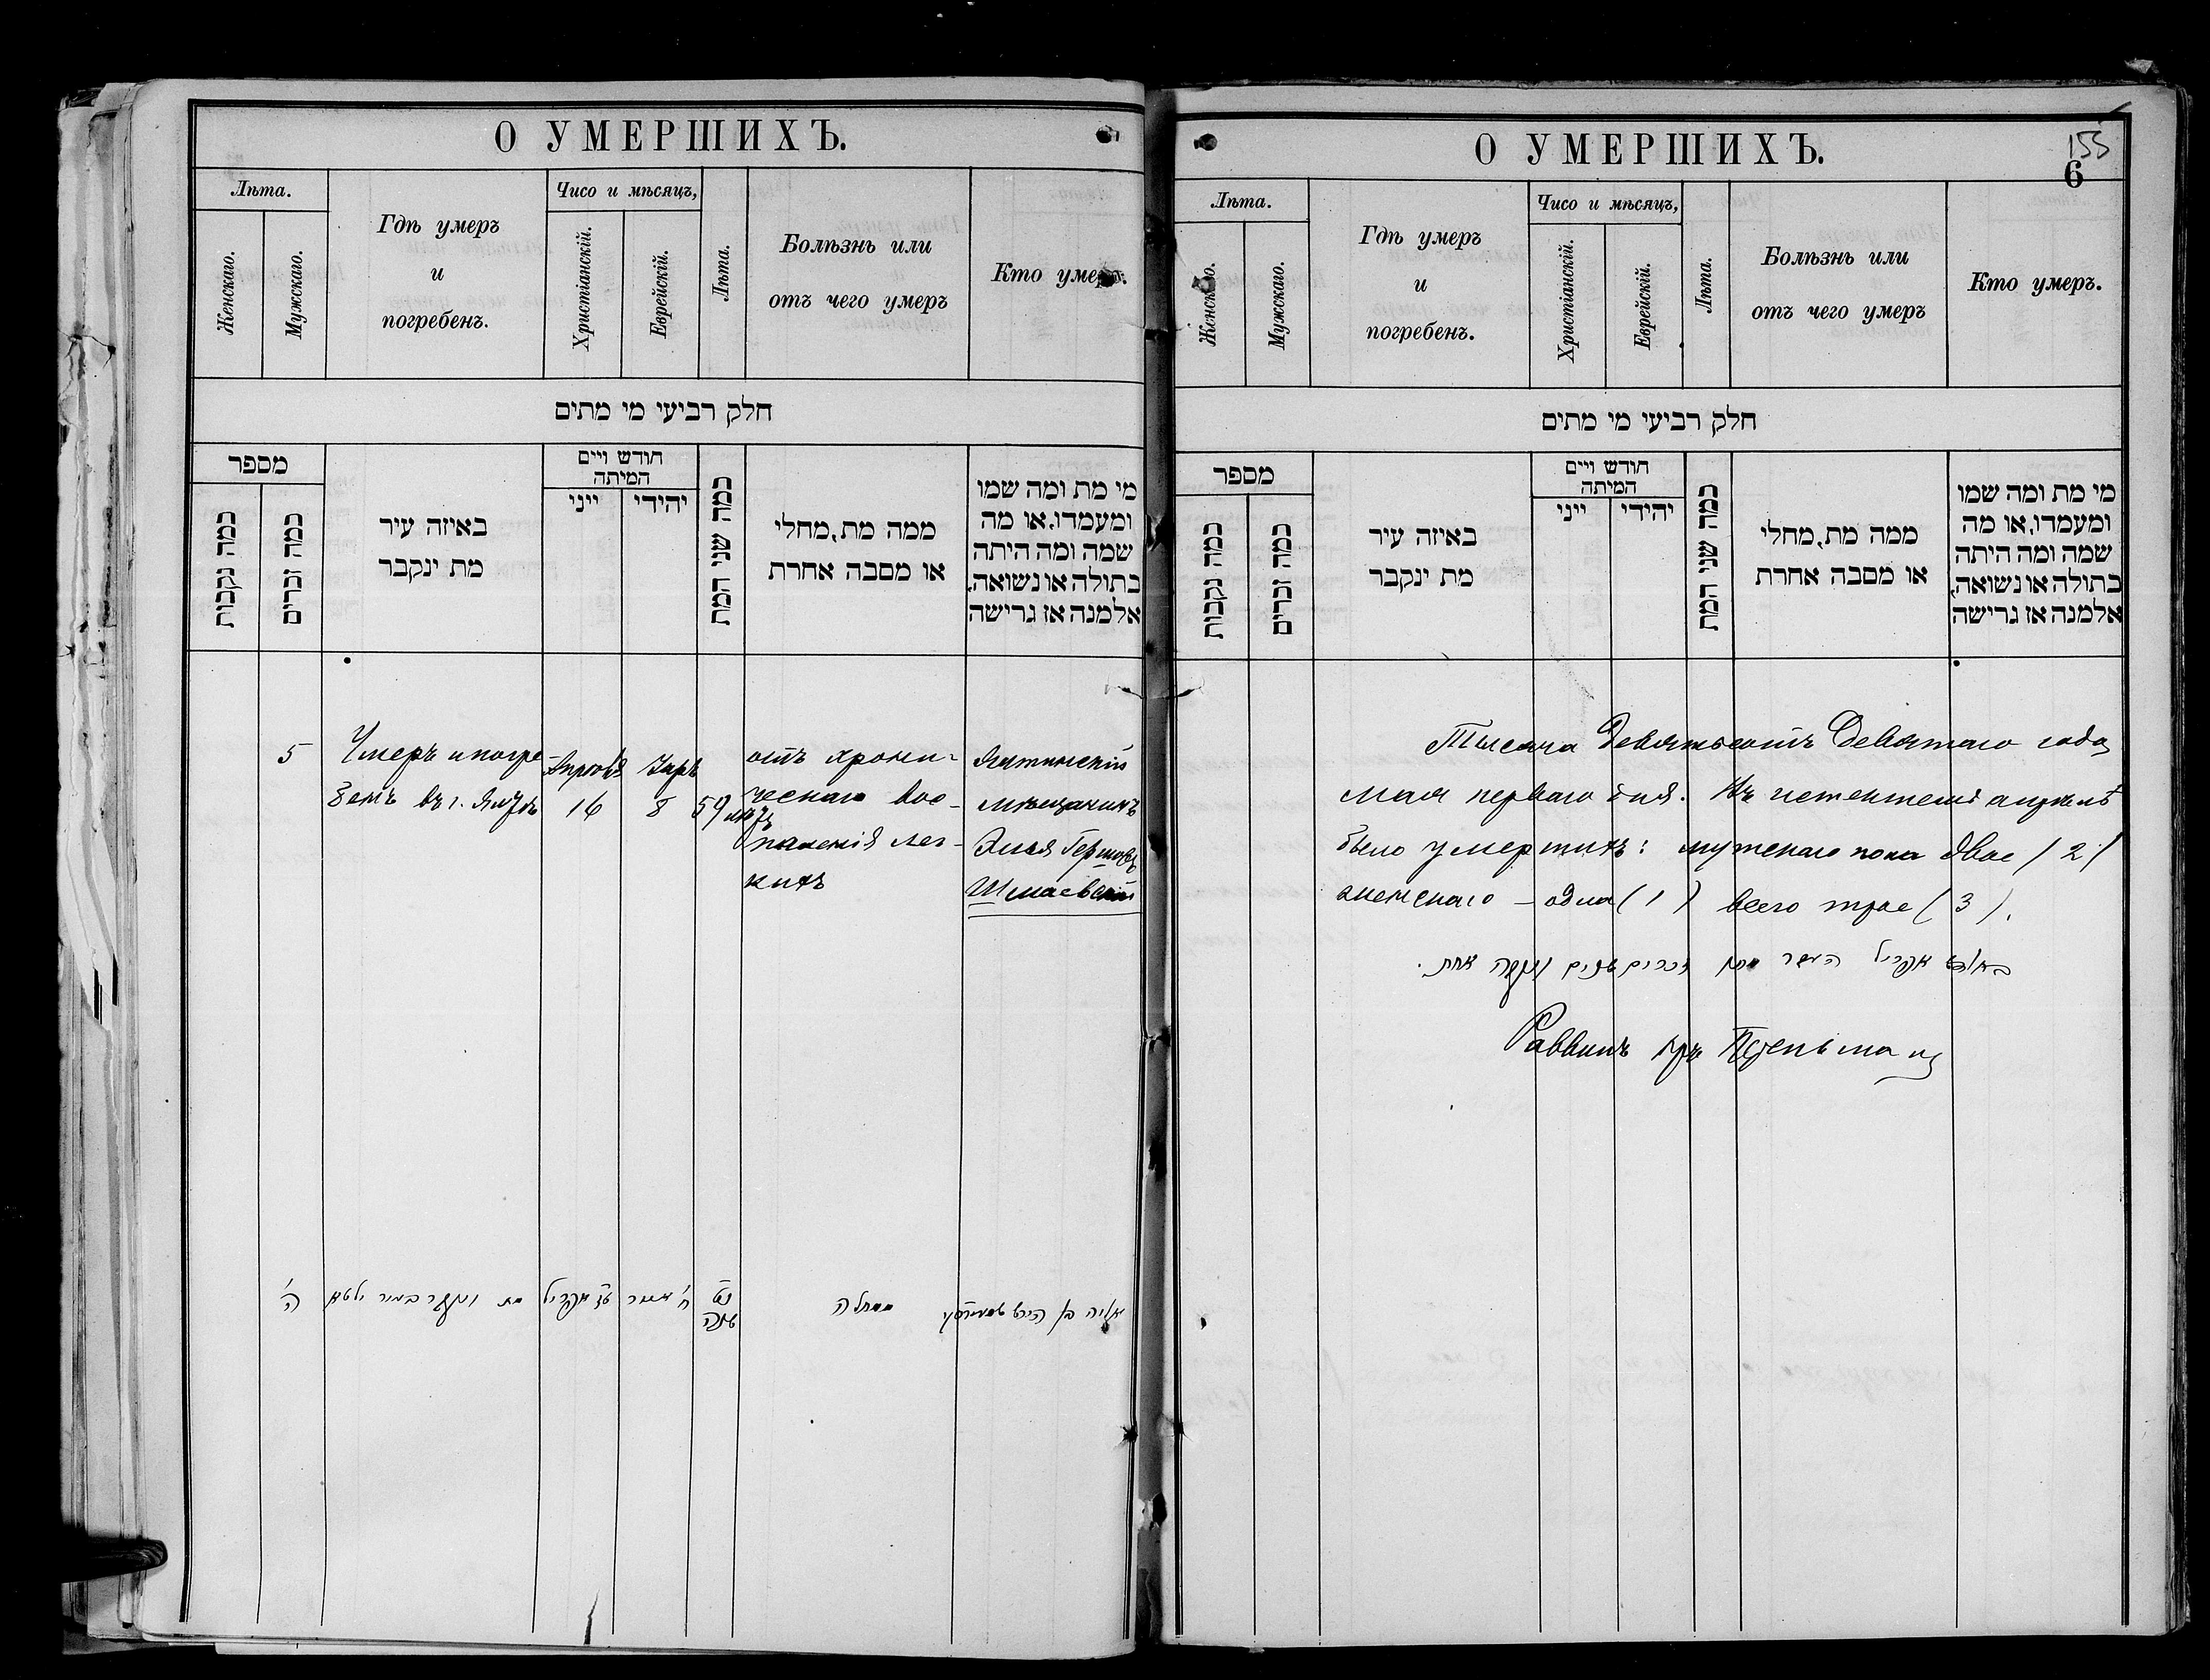 О УМЕРШИХЪ.
Лѣта.
Женскаго.
Мужскаго.
Гдѣ умеръ
и
погребенъ.
Чисо и мѣсяцъ,
Христіанскій.
Еврейскій.
Лѣта.
Болѣзнь или
отъ чего умеръ
Кто умеръ.
חלק רביעי מי מתים
מספר
כמה נקבות
כמה זכרים
באיזה עיר
מת ינקבר
חודש ויים
המיתה
ייני
יהידי
כמה שני המת
ממה מת, מחלי
או מסבה אחרת
מי מת ומה שמו
ומעמדו, או מה
שמה ומה היתה
בתולה או נשואה,
אלמנה אז גרישה
5
Умеръ и погре-
бенъ въ г. Ялтѣ
Апрѣля
16
Іаръ
8
59 лѣтъ
отъ хрони-
ческаго вос-
паленія лег-
кихъ
Ялтинскій
мѣщанинъ
Элья Гершовъ
Шмаевскій
ה'
מת ונקבר בעיר ילטא
טז אפריל
ח' אייר
נט
שנה
ממחלה
אליה בן הירש
О УМЕРШИХЪ.
155
6
Лѣта.
Женскаго.
Мужскаго.
Гдѣ умеръ
и
погребенъ.
Чисо и мѣсяцъ,
Христіанскій.
Еврейскій.
Лѣта.
Болѣзнь или
отъ чего умеръ
Кто умеръ.
חלק רביעי מי מתים
מספר
כמה נקבות
כמה זכרים
באיזה עיר
מת ינקבר
חודש ויים
המיתה
ייני
יהידי
כמה שני המת
ממה מת, מחלי
או מסבה אחרת
מי מת ומה שמו
ומעמדו, או מה
שמה ומה היתה
בתולה או נשואה,
אלמנה אז גרישה
Тысяча девятьсотъ девятаго года
мая перваго дня. Въ истекшемъ апрелѣ
было умершихъ: мужскаго пола двое (2)
женскаго – одна (1) всего трое (3).
בחודש אפריל העבר מתו זכרים שנים ונקבה אחת.
Раввинъ